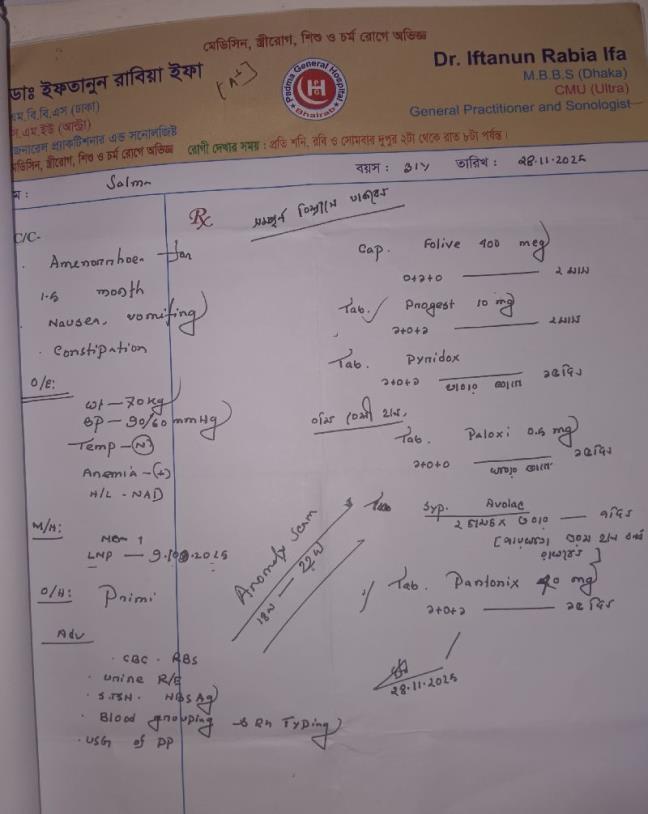 মেডিসিন, স্ত্রীরোগ, শিশু ও চর্ম রোগে অভিজ্ঞ
ডাঃ ইফতানুন রাবিয়া ইফা
এম.বি.বি.এস (ঢাকা)
সি.এম.ইউ (আল্ট্রা)
জেনারেল প্র্যাকটিশনার এন্ড সনোলজিষ্ট
মেডিসিন, স্ত্রীরোগ, শিশু ও চর্ম রোগে অভিজ্ঞ
[A+]
Padma General Hospital
Bhairab
Dr. Iftanun Rabia Ifa
M.B.B.S (Dhaka)
CMU (Ultra)
General Practitioner and Sonologist
রোগী দেখার সময় : প্রতি শনি, রবি ও সোমবার দুপুর ২টা থেকে রাত ৮টা পর্যন্ত।
Salma
বয়স : 31y
তারিখ : 28.11.2025
C/C-
Amenorrhoea for
1.5 month
Nausea, vomiting
Constipation
O/E:
wt — 70 kg
BP — 90/60 mmHg
Temp — N
Anemia - (+)
H/L - NAD
M/H:
LMP — 9.10.2025
O/H: Primi
Adv
CBC · RBS
Urine R/E
S.TSH · HBsAg
Blood grouping & Rh Typing
USG of PP
Rx
সম্পূর্ণ বিশ্রামে থাকবেন
Cap. Folive 400 mcg
০+১+০ ——— ২ মাস
Tab. Progest 10 mg
১+০+১ ——— ২ মাস
Tab. Pyridox
১+০+১ ——— ১৫ দিন
বমি বেশী হলে,
Tab. Paloxi 0.5 mg
১+০+০ ——— ১৫ দিন
Syp. Avolac
২ চামচ ——— ৭ দিন
Tab. Pantonix 20 mg
১+০+১ ——— ১৫ দিন
Anomaly Scan
18w — 22w
28.11.2025